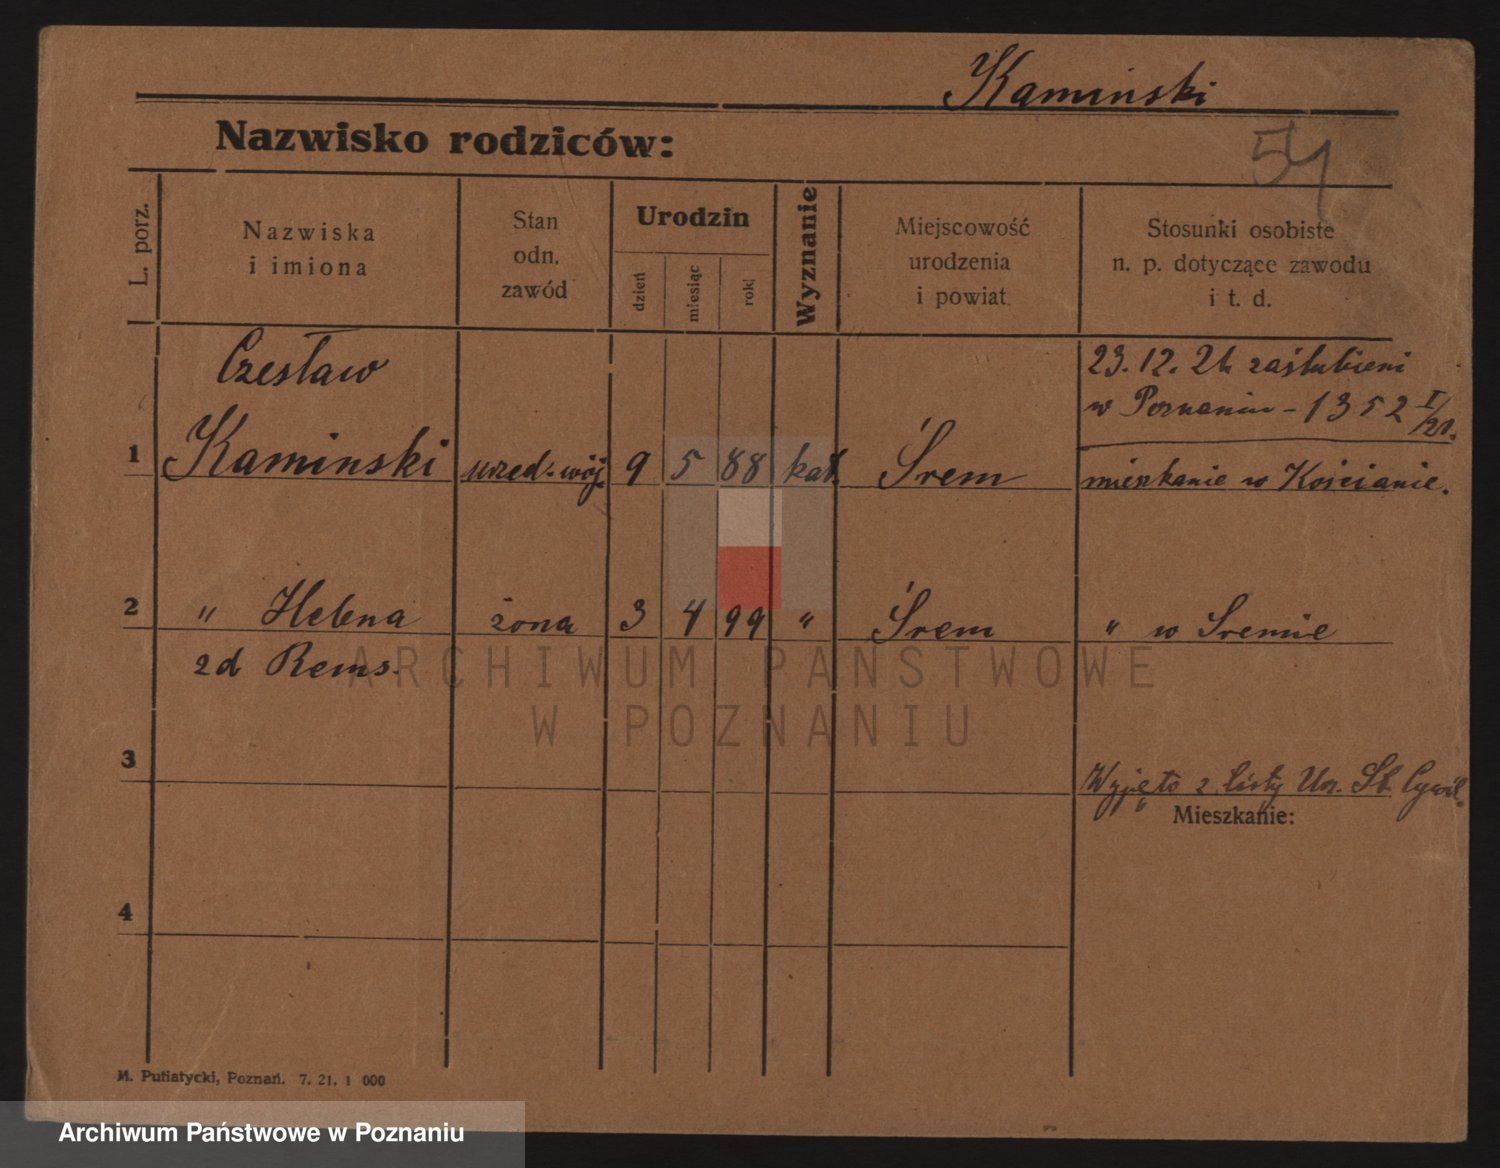 Kaminski
Nazwisko rodziców:
51
L. porz.
Nazwiska
i imiona
Stan
odn.
zawód
Urodzin
dzień
miesiąc
rok
Wyznanie
Miejscowość
urodzenia
i powiat
Stosunki osobiste
n. p. dotyczące zawodu
i t. d.
Czesław
23. 12. 21 zaślubieni
w Poznaniu - 1352 I/21.
1 Kaminski urzed. wój. 9 5 88 kat. Śrem mieszkanie w Kościanie.
2 " Helena żona 3 4 99 " Śrem " w Sremie
zd Rems.
ARCHIWUM PAŃSTWOWE
W POZNANIU
3 Wyjęto z listy Urz. St. Cywil.
Mieszkanie:
4
M. Putiatycki, Poznań. 7. 21. 1 000
Archiwum Państwowe w Poznaniu